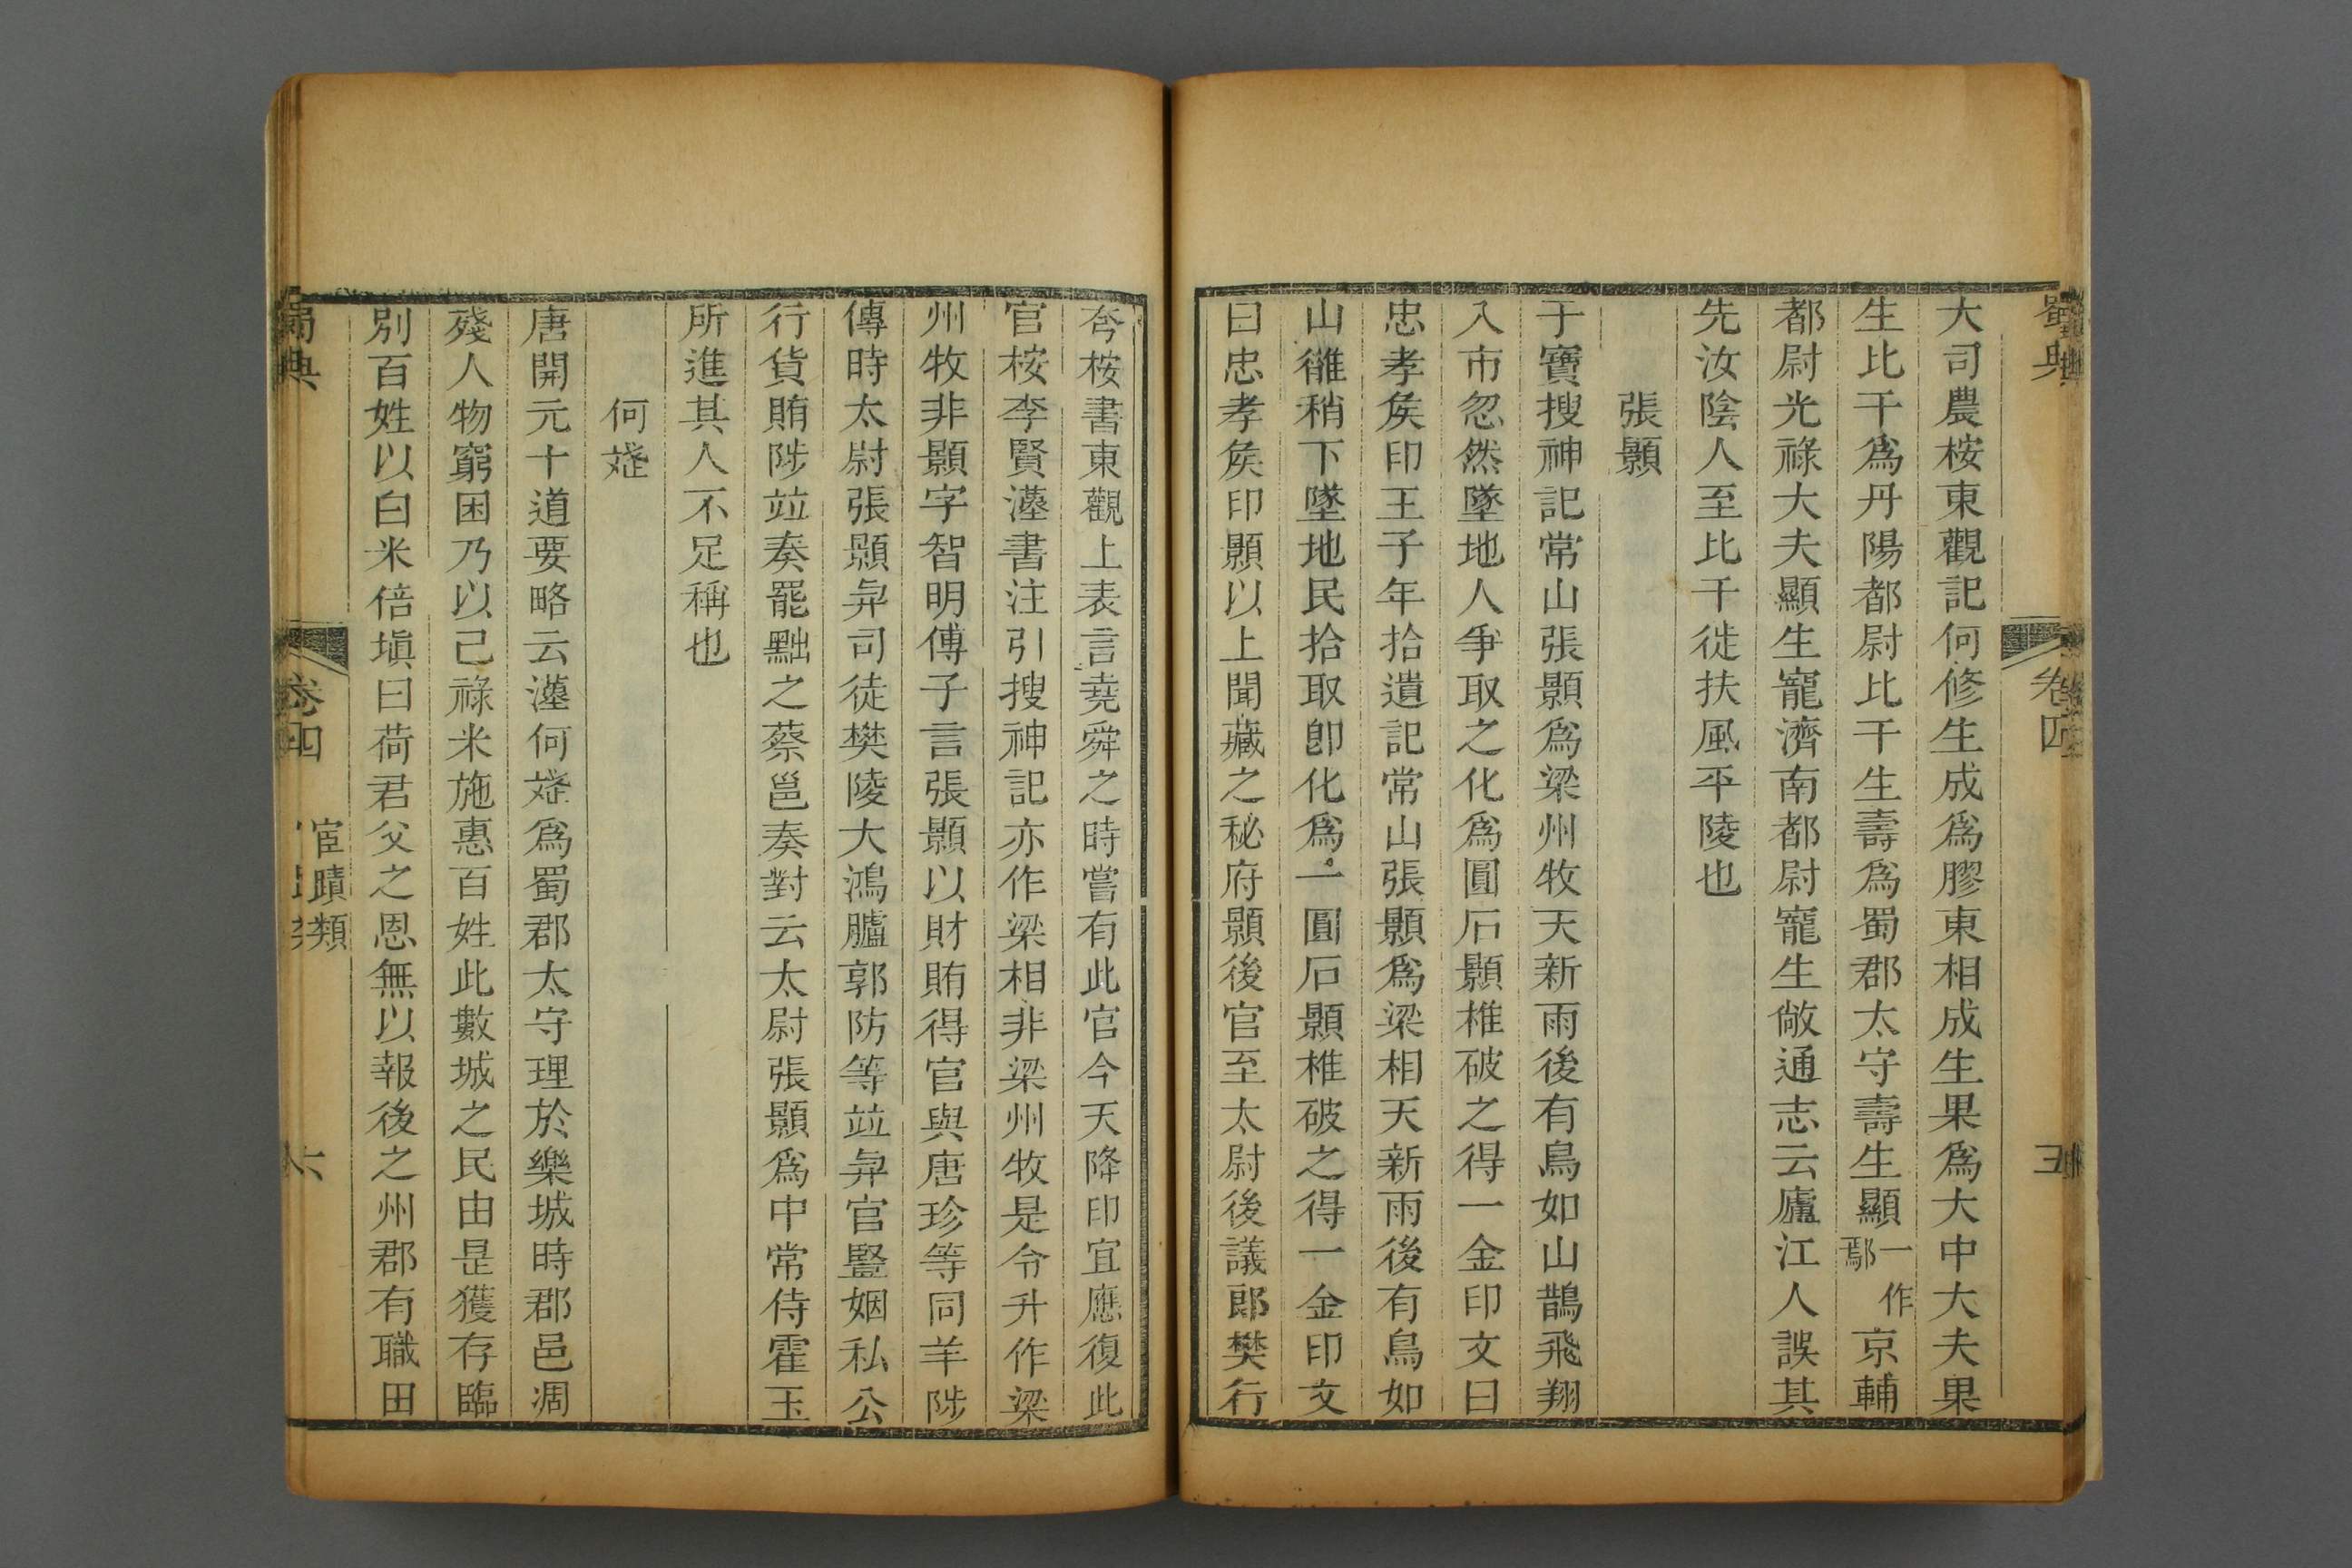 蜀典
卷四
五
大司農桉東觀記何修生成爲膠東相成生果爲大中大夫果
生比干爲丹陽都尉比干生壽爲蜀郡太守壽生顯一作鄢京輔
都尉光祿大夫顯生寵濟南都尉寵生敞通志云廬江人誤其
先汝陰人至比干徙扶風平陵也
張顥
于寶搜神記常山張顥爲梁州牧天新雨後有鳥如山鵲飛翔
入市忽然墜地人爭取之化爲圓石顥椎破之得一金印文曰
忠孝矦印王子年拾遺記常山張顥爲梁相天新雨後有鳥如
山雉稍下墜地民拾取卽化爲一圓石顥椎破之得一金印文
曰忠孝矦印顥以上聞藏之秘府顥後官至太尉後議郎樊行
夻桉書東觀上表言堯舜之時嘗有此官今天降印宜應復此
官桉李賢漢書注引搜神記亦作梁相非梁州牧是令升作梁
州牧非顥字智明傅子言張顥以財賄得官與唐珍等同羊陟
傳時太尉張顥㒷司徒樊陵大鴻臚郭防等竝㒷官豎姻私公
行貨賄陟竝奏罷黜之蔡邕奏對云太尉張顥爲中常侍霍玉
所進其人不足稱也
何
唐開元十道要略云漢何爲蜀郡太守理於樂城時郡邑凋
殘人物窮困乃以己祿米施惠百姓此數城之民由是獲存臨
別百姓以白米倍塡曰荷君父之恩無以報後之州郡有職田
蜀典
卷四
宦蹟類
六